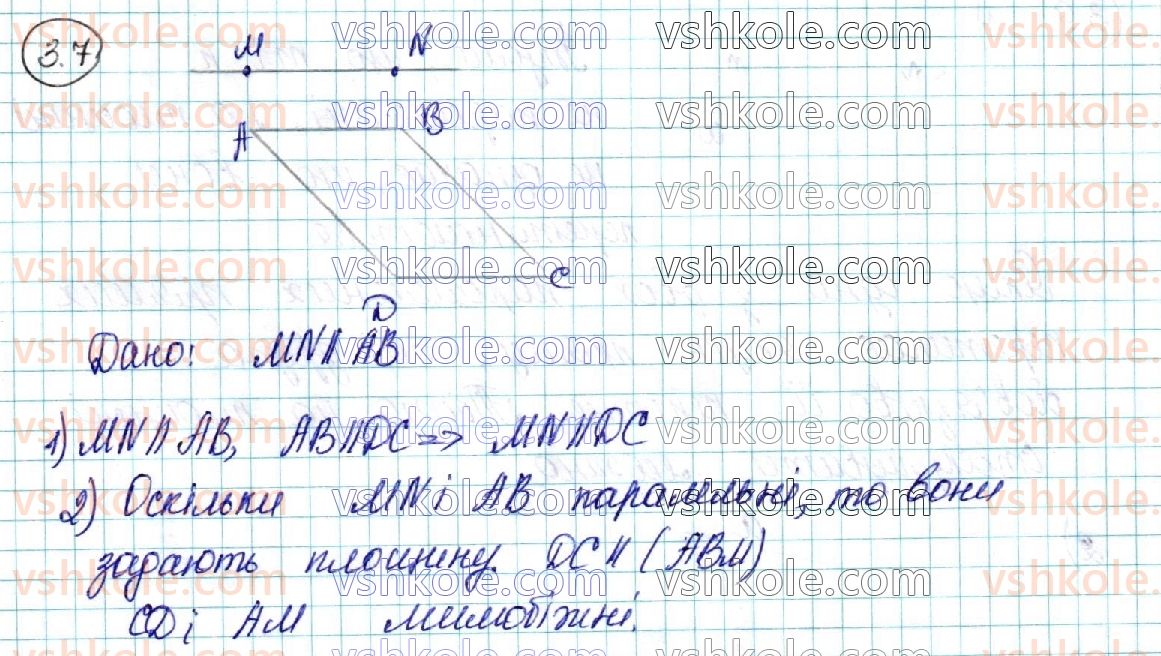 3.7
M N
A B
C
D
Дано: MN || AB
1) MN || AB, AB || DC => MN || DC
2) Оскільки MN і AB паралельні, то вони
задають площину. DC || (ABM)
CD і AM мимобіжні.
vshkole.com